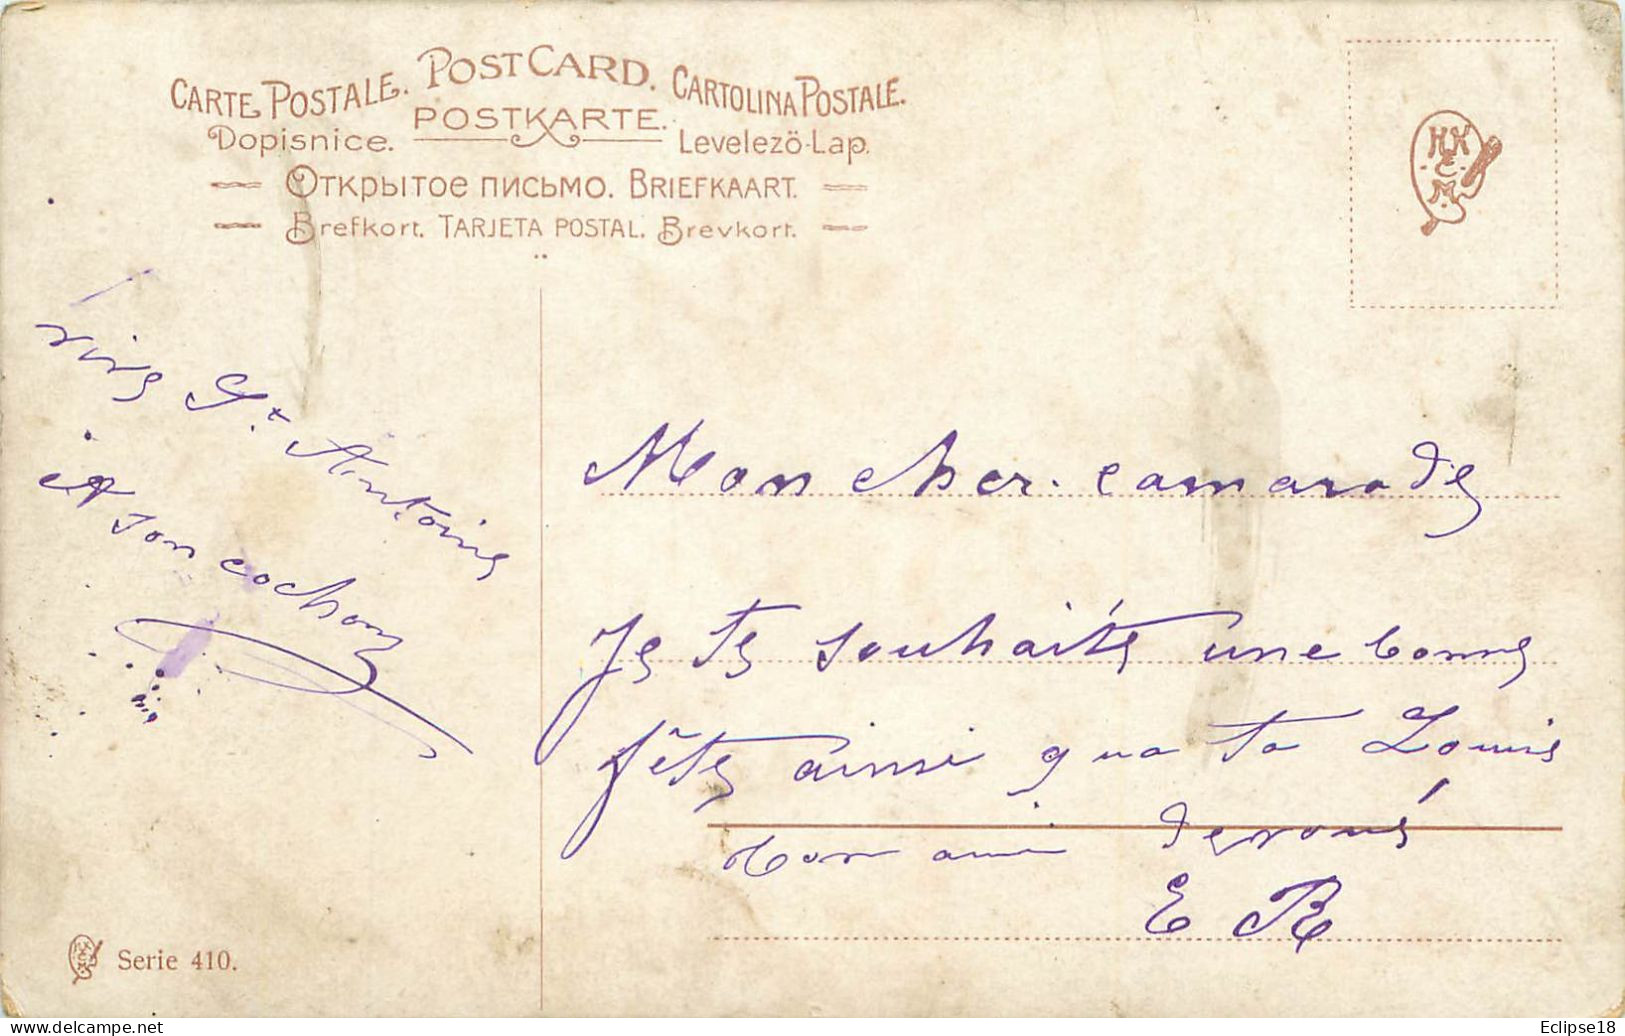 CARTE POSTALE. POST CARD. CARTOLINA POSTALE.
POSTKARTE.
Dopisnice. Levelező-Lap.
Открытое письмо. BRIEFKAART.
Brefkort. TARJETA POSTAL. Brevkort.
HK
E
M
vive St Antoine
et son cochon
Mon cher camarade
Je te souhaite une bonne
fête ainsi qua ta Louise
ton ami dévoué
E R
Serie 410.
delcampe.net
Eclipse18